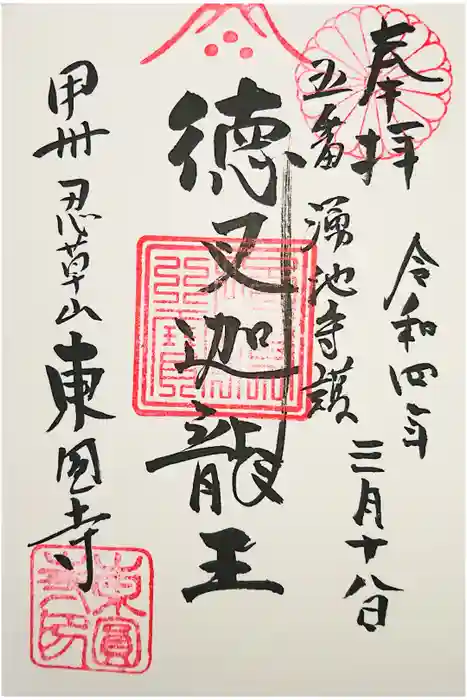 奉拝
令和四年
三月十八日
五番 湧池守護
徳叉迦龍王
甲州忍草山東圓寺